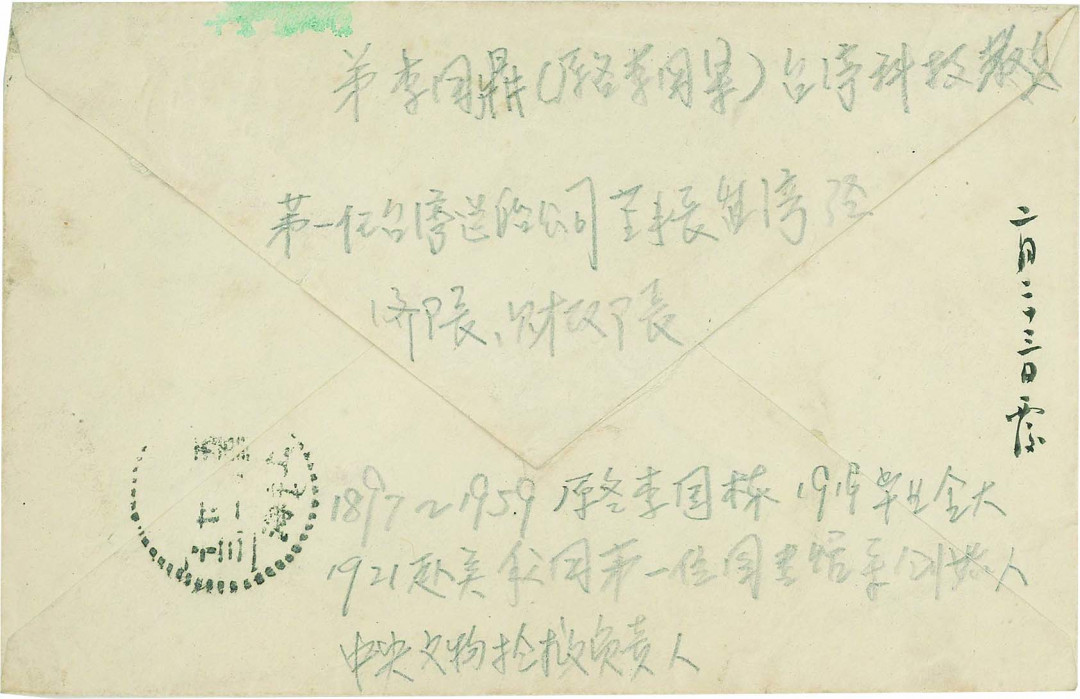 弟李国鼎(原名李国)台湾科技教父
第一任台湾造船公司董事长台湾经
济卩長、财政卩長
二月二十三日
1897~1959 原名李国栋 1919毕业金大
1921赴美我国第一位图书馆系创始人
中央文物抢救负责人